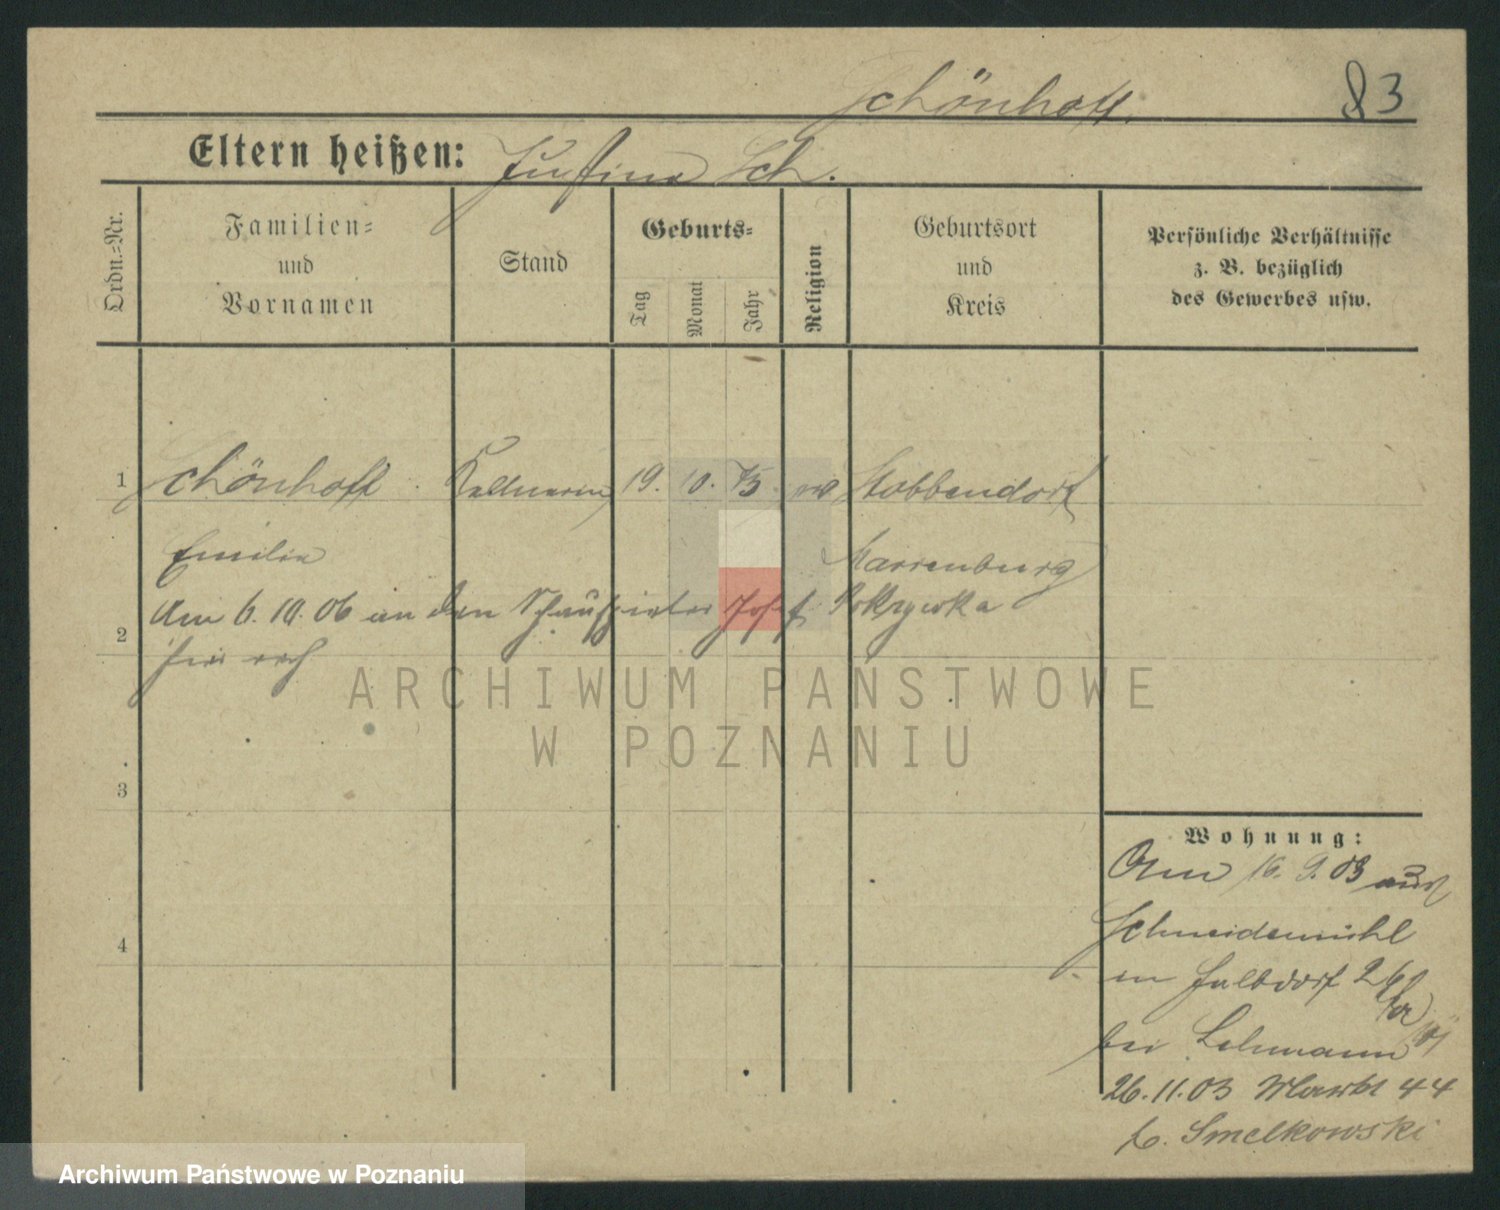 Schönhoff.
83
Eltern heißen: Justina Sch.
Ordn.-Nr.
Familien-
und
Vornamen
Stand
Geburts-
Tag
Monat
Jahr
Religion
Geburtsort
und
Kreis
Persönliche Verhältnisse
z. B. bezüglich
des Gewerbes usw.
1 Schönhoff Kellnerin 19. 10. 75 Stobbendorf
Emilie Marienburg
Am 6. 10. 06 an den Schauspieler Josef Pokrzywka
2
3
4
Wohnung:
Am 16. 9. 03 aus
Schneidemühl
in Halbdorf 26
bei Lehmann
26. 11. 03 Markt 44
b. Smelkowski
ARCHIWUM PAŃSTWOWE
W POZNANIU
Archiwum Państwowe w Poznaniu